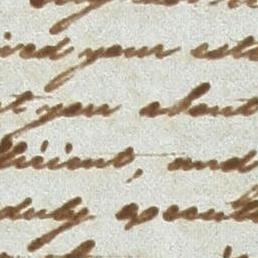 ived your este
t you about
ficient, and
duly execut